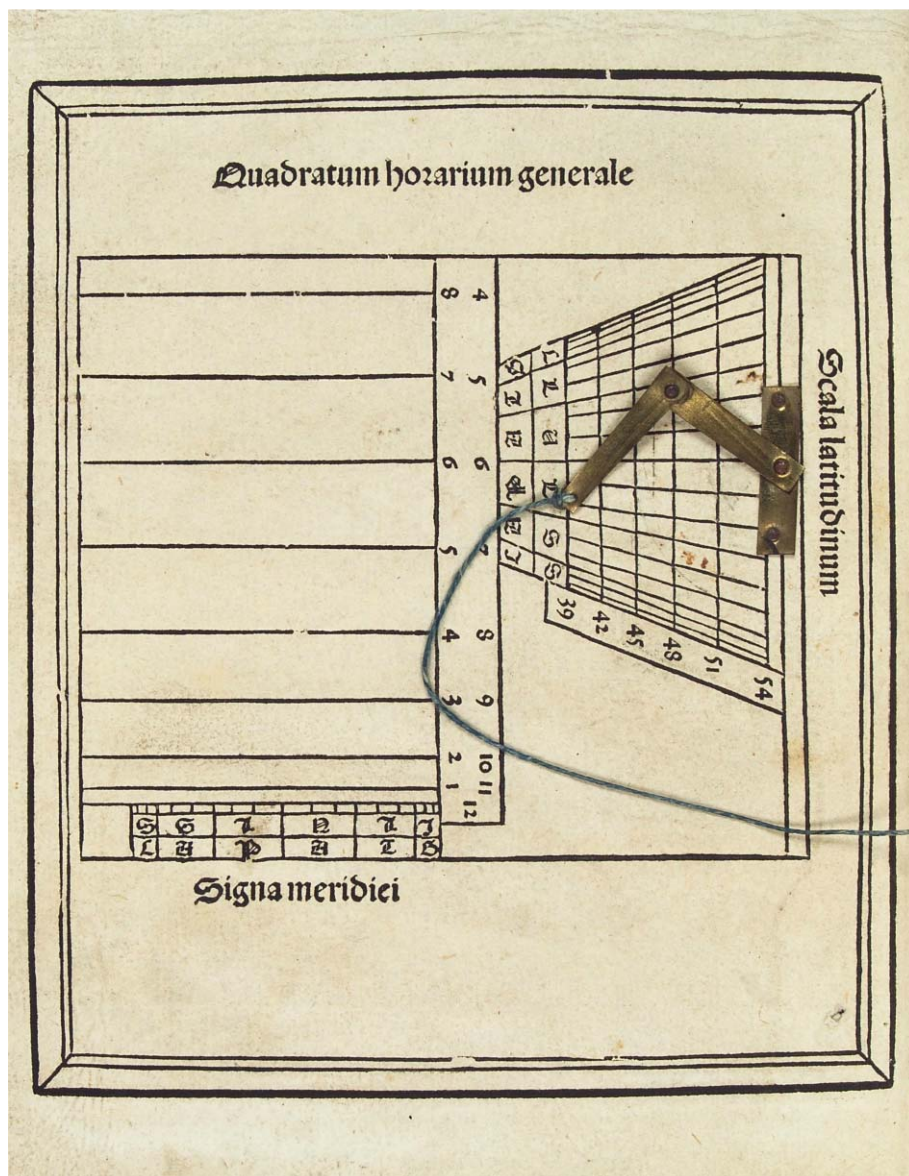 Quadratum horarium generale
Scala latitudinum
8 4
7 5
6 6
5 7
4 8
3 9
2 10
1 11
12
39 42 45 48 51 54
Signa meridiei